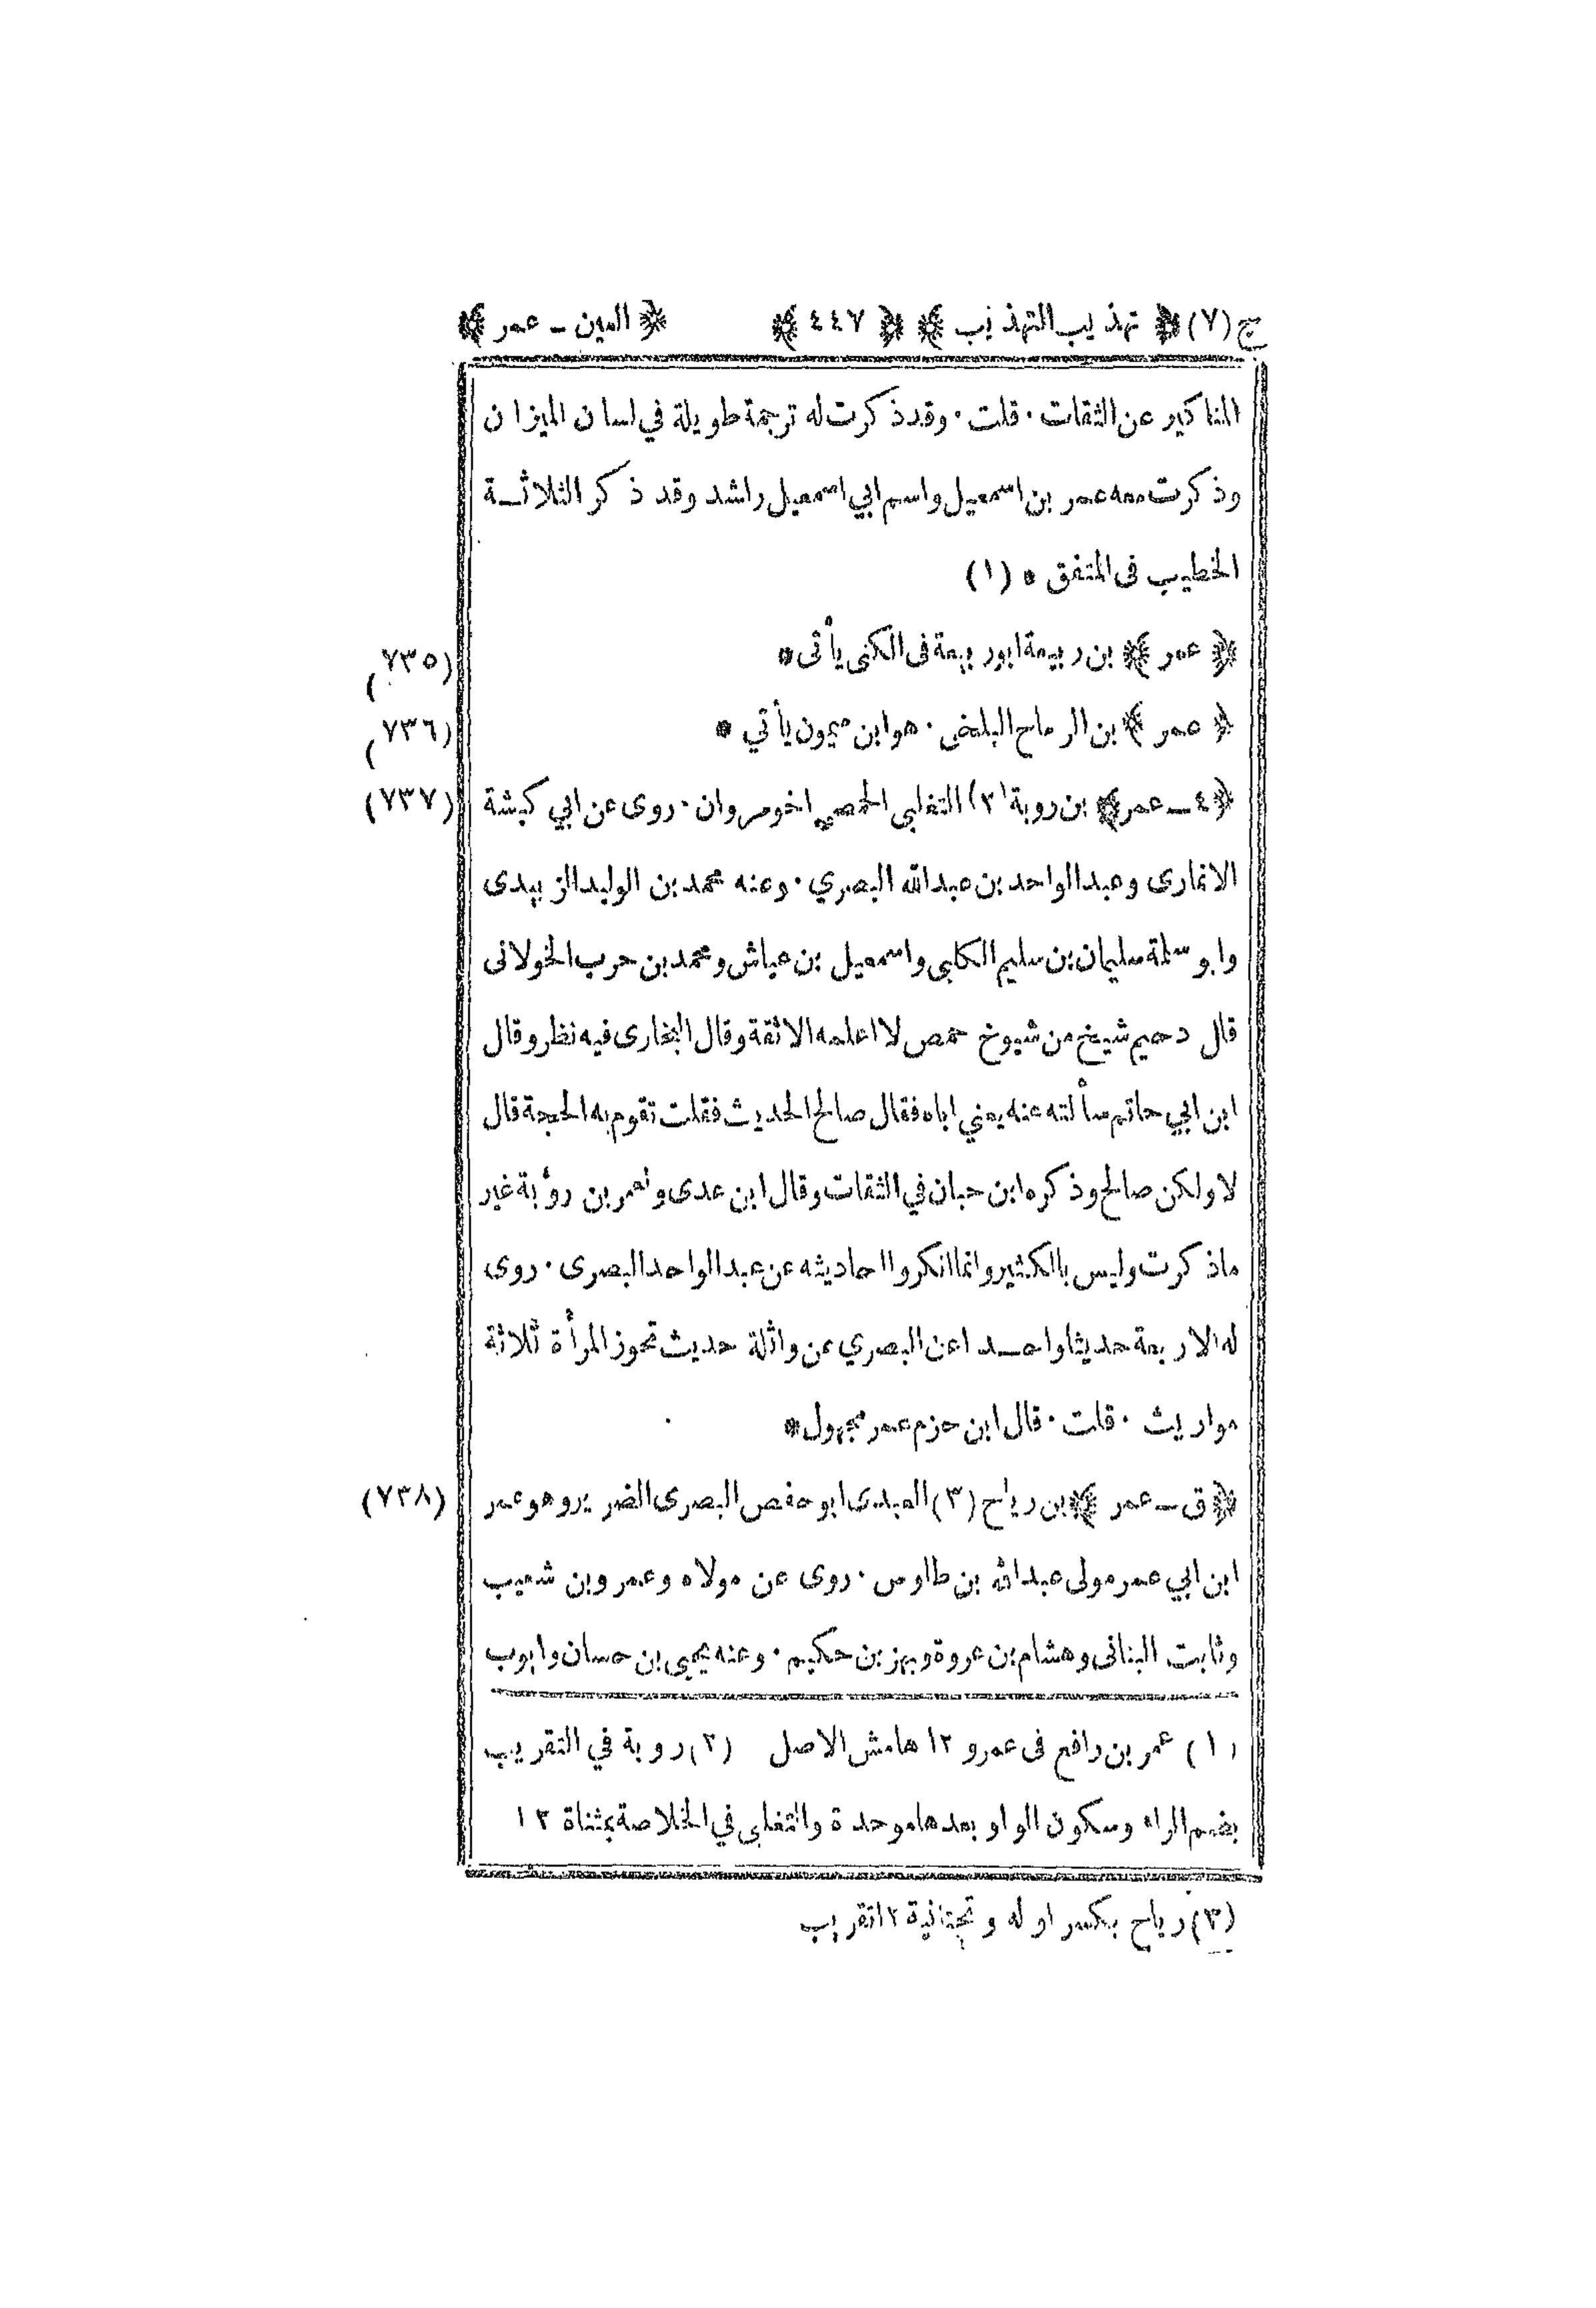 ج (٧) ﴿ تهذيب التهذيب ﴾ ﴿ ٤٤٧ ﴾ ﴿ العين ـ عمر ﴾
المناكير عن الثقات · قلت · وقد ذكرت له ترجمة طويلة في لسان الميزان
وذكرت معه عمر بن اسمعيل واسم ابي اسمعيل راشد وقد ذكر الثلاثة
الخطيب فى المتفق * (١)
﴿ عمر ﴾ بن ربيعة ابو ربيعة فى الكنى يأتى * (٧٣٥)
﴿ عمر ﴾ بن الرماح البلخي · هو ابن ميمون يأتي * (٧٣٦)
﴿ ٤ ـ عمر ﴾ بن روبة (٢) التغلبى الحمصي اخو مروان · روى عن ابي كبشة (٧٣٧)
الانمارى وعبد الواحد بن عبد الله البصري · وعنه محمد بن الوليد الزبيدى
وابو سلمة سليمان بن سليم الكلبى واسمعيل بن عياش ومحمد بن حرب الخولانى
قال دحيم شيخ من شيوخ حمص لا اعلمه الا ثقة وقال البخارى فيه نظر وقال
ابن ابي حاتم سألته عنه يعني اباه فقال صالح الحديث فقلت تقوم به الحجة قال
لا ولكن صالح وذكره ابن حبان في الثقات وقال ابن عدى ولعمر بن رؤبة غير
ما ذكرت وليس بالكثير وانما انكروا احاديثه عن عبد الواحد البصرى · روى
له الاربعة حديثا واحدا عن البصري عن واثلة حديث تحوز المرأة ثلاثة
مواريث · قلت · قال ابن حزم عمر مجهول *
﴿ ق ـ عمر ﴾ بن رياح (٣) العبدى ابو حفص البصرى الضرير وهو عمر (٧٣٨)
ابن ابي عمر مولى عبد الله بن طاوس · روى عن مولاه وعمرو بن شعيب
وثابت البنانى وهشام بن عروة وبهز بن حكيم · وعنه يحيى بن حسان وايوب
(١) عمر بن رافع فى عمرو ١٢ هامش الاصل (٢) روبة في التقريب
بضم الراء وسكون الواو بعدها موحدة والتغلبى في الخلاصة بمثناة ١٢
(٣) رياح بكسر اوله وتحتانية ١٢ تقريب